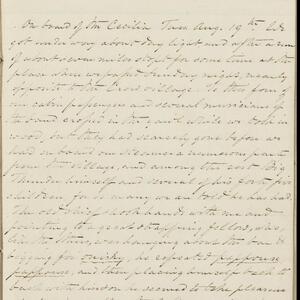 On board of Str. Cecilia Tues Aug. 19th We
got under way about day light and after a run
of about seven miles stopt for some time at the
place where we passed Sunday night, nearly
opposite to the Crow village. Here four of
our cabin passengers and several musicians of
the band crossed in the yawl while we took in
wood, but they had scarcely gone before we
had on board our steamer a numerous party
from the village, and among the rest Big
Thunder himself and several of his forty five
children, for so many we are told he has had.
The old chief shook hands with me and
pointing to a great strapping fellow, who,
like the others, was hanging about the bar &
begging for whisky, he repeated pappoose
pappoose, and then placing himself back to
back with him on he seemed to be pleasure